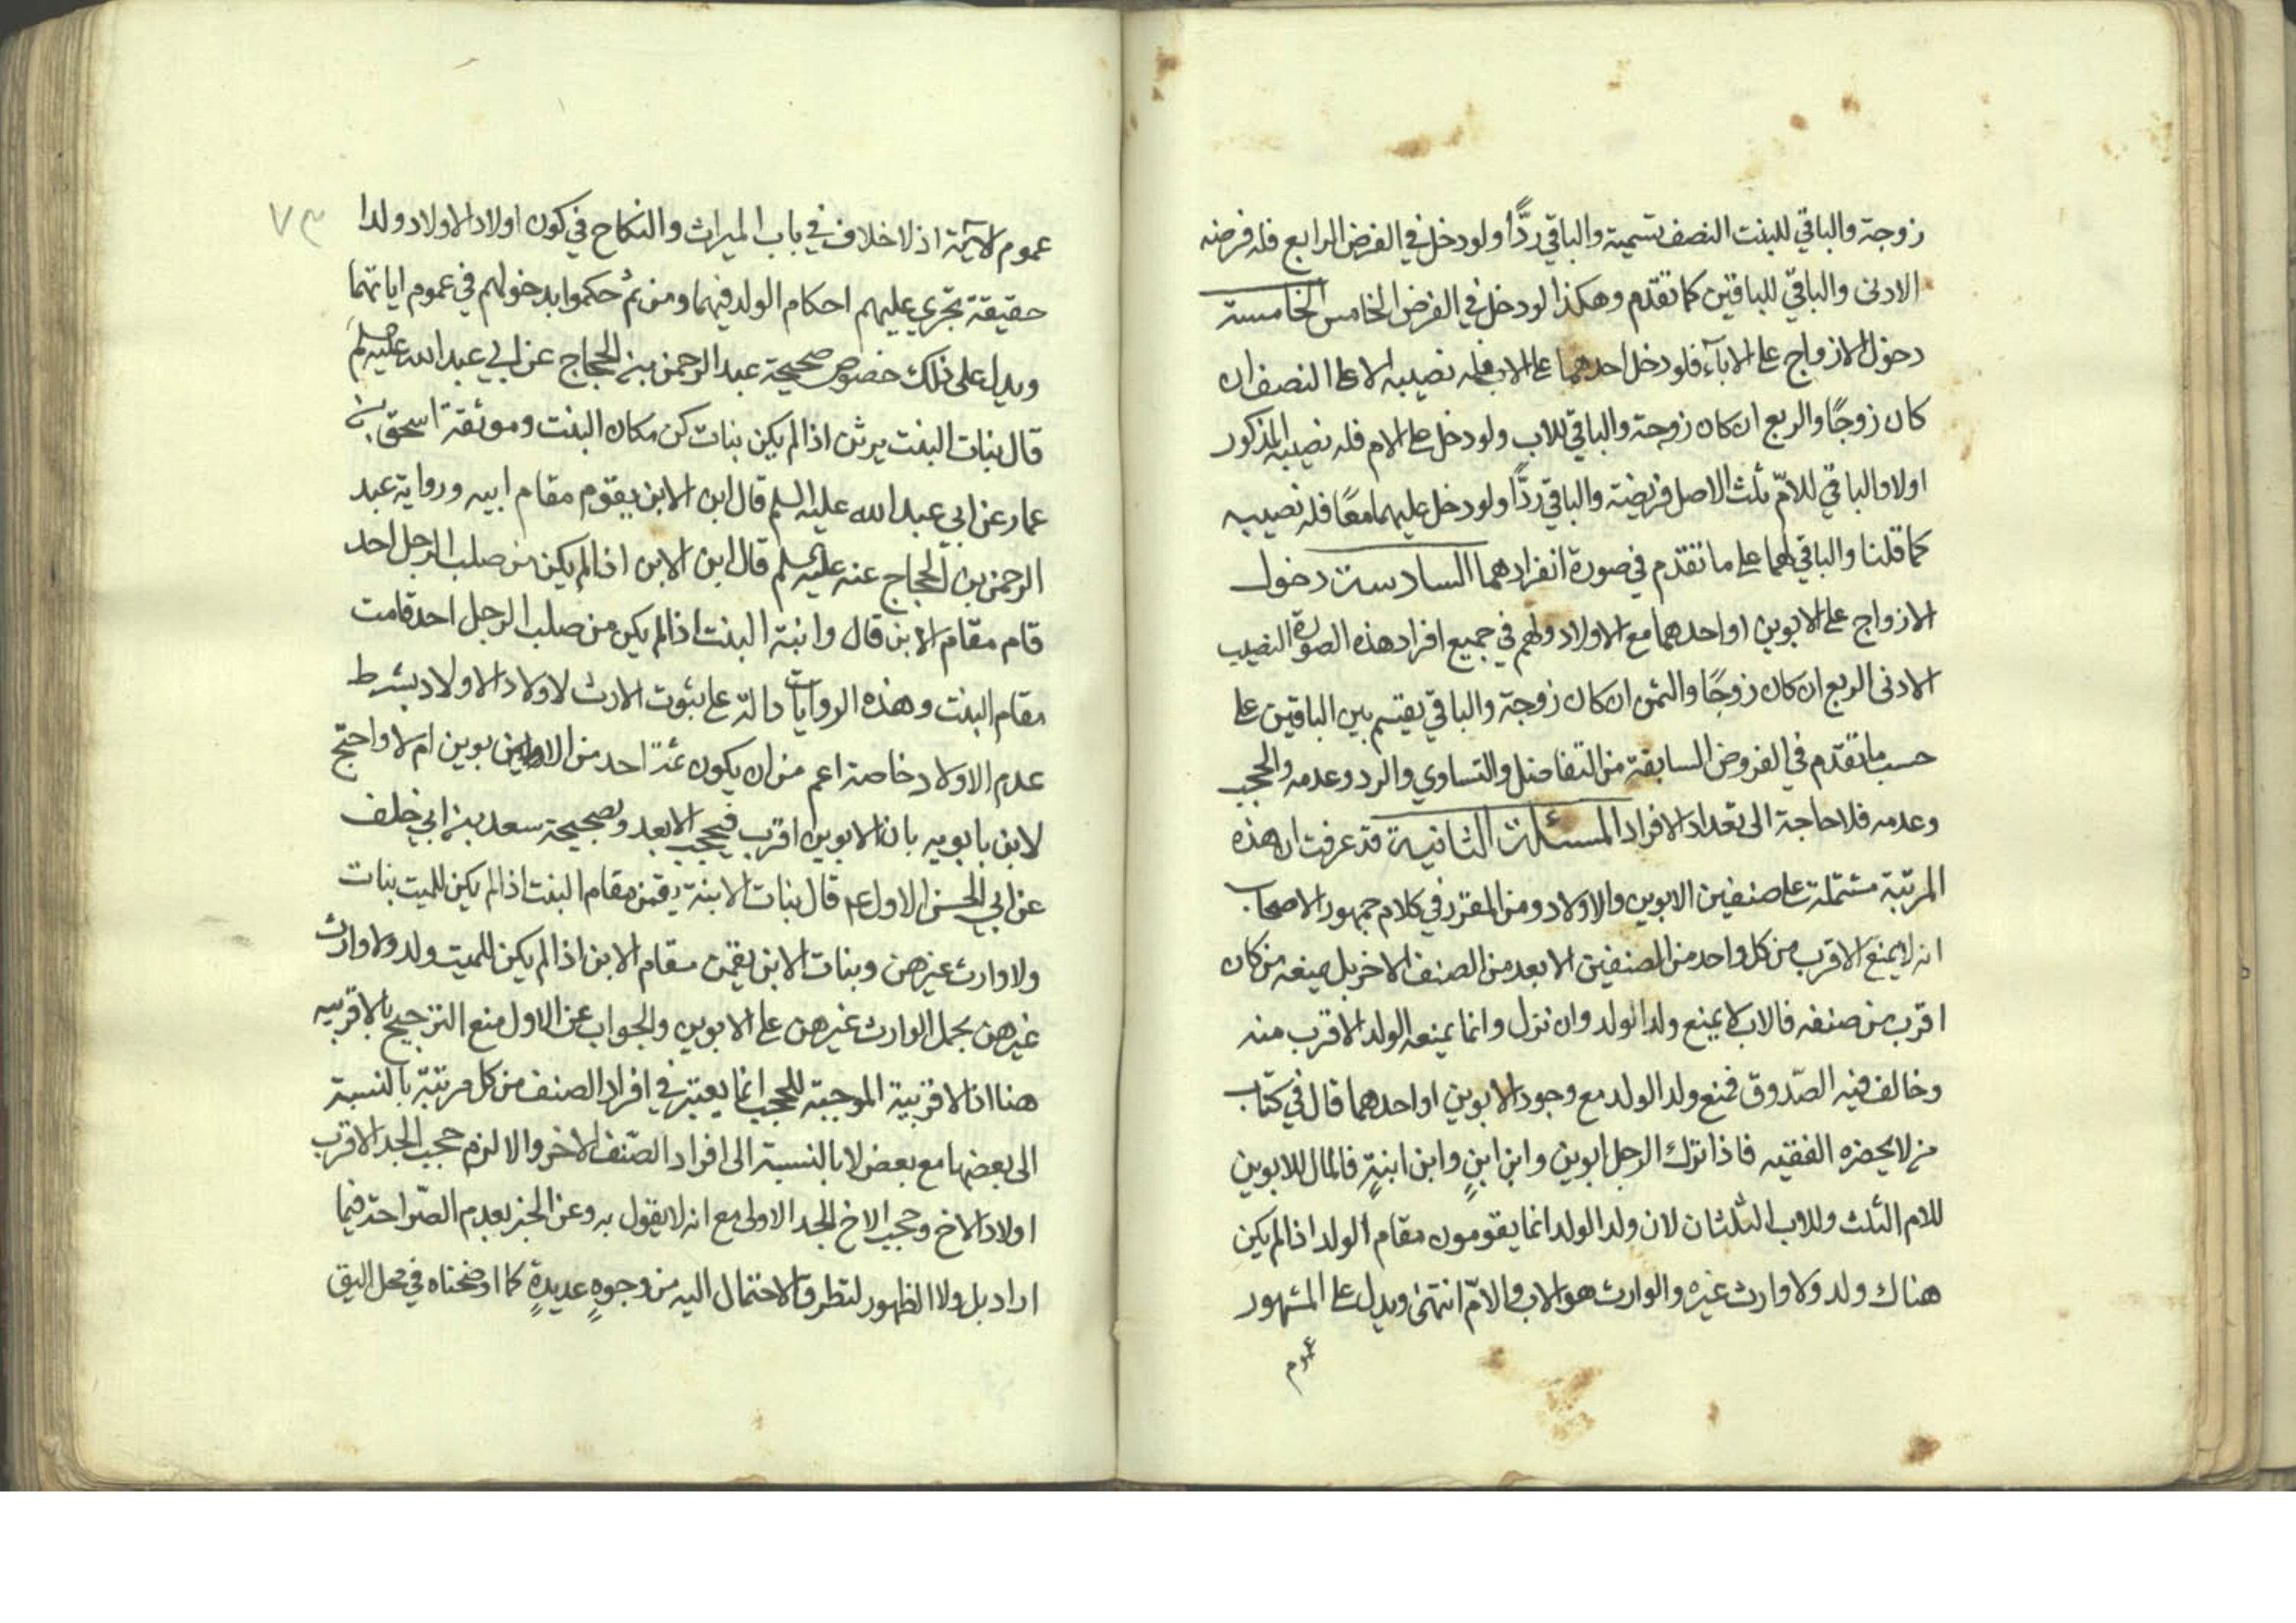 زوجة والباقي للبنت النصف تسمية والباقي ردًّا ولو دخل في الفرض الرابع فله فرضه
الادنى والباقي للباقين كما تقدم وهكذا لو دخل في الفرض الخامس الخامسة
دخول الازواج على الاباء فلو دخل احدهما على الاب فله نصيبه الاعلا النصف ان
كان زوجًا والربع ان كان زوجة والباقي للاب ولو دخل على الام فله نصيبه المذكور
اولا والباقي للامّ ثلث الاصل فريضة والباقي ردًّا ولو دخل عليهما معًا فله نصيبه
كما قلنا والباقي لهما على ما تقدم في صورة انفرادهما السادسة دخول
الازواج على الابوين او احدهما مع الاولاد ولهم في جميع افراد هذه الصورة النصيب
الادنى الربع ان كان زوجًا والثمن ان كان زوجة والباقي يقسم بين الباقين على
حسب ما تقدّم في الفروض السابقة من التفاضل والتساوي والرد وعدمه والحجب
وعدمه فلا حاجة الى تعداد الافراد المسئلة الثانية قد عرفت ان هذه
المرتبة مشتملة على صنفين الابوين والاولاد ومن المقرر في كلام جمهور الاصحاب
انه لا يمنع الاقرب من كل واحد من الصنفين الابعد من الصنف الاخر بل يمنعه من كان
اقرب من صنفه فالاب لا يمنع ولد الولد وان نزل وانما يمنعه الولد الاقرب منه
وخالف فيه الصّدوق فمنع ولد الولد مع وجود الابوين او احدهما قال في كتاب
من لا يحضره الفقيه فاذا ترك الرجل ابوين وابن ابنٍ وابن ابنةٍ فالمال للابوين
للام الثلث وللاب الثلثان لان ولد الولد انما يقومون مقام الولد اذا لم يكن
هناك ولد ولا وارث غيره والوارث هو الاب والامّ انتهى ويدل على المشهور
عموم
٧٣
عموم الآية اذ لا خلاف في باب الميراث والنكاح في كون اولاد الاولاد ولدا
حقيقة تجري عليهم احكام الولد فيهما ومن ثم حكموا بدخولهم في عموم اياتهما
ويدل على ذلك خصوص صحيحة عبد الرحمن بن الحجاج عن ابي عبد الله عليه السلم
قال بنات البنت يرثن اذا لم يكن بنات كن مكان البنت وموثقة اسحق بن
عمار عن ابي عبد الله عليه السلم قال ابن الابن يقوم مقام ابيه ورواية عبد
الرحمن بن الحجاج عنه عليه السلم قال ابن الابن اذا لم يكن من صلب الرجل احد
قام مقام الابن قال وابنة البنت اذا لم يكن من صلب الرجل احد قامت
مقام البنت وهذه الروايات دالة على ثبوت الارث لاولاد الاولاد بشرط
عدم الاولاد خاصة اعم من ان يكون ثمّة احد من الابوين ام لا واحتج
لابن بابويه بان الابوين اقرب فيحجب الابعد وبصحيحة سعد بن ابي خلف
عن ابي الحسن الاول ع م قال بنات الابنة يقمن مقام البنت اذا لم يكن للميت بنات
ولا وارث غيرهن وبنات الابن يقمن مقام الابن اذا لم يكن للميت ولد ولا وارث
غيرهن بحمل الوارث غيرهن على الابوين والجواب عن الاول منع الترجيح بالاقربيه
هنا اذ الاقربية الموجبة للحجب انما يعتبر في افراد الصنف من كل مرتبة بالنسبة
الى بعضها مع بعض لا بالنسبة الى افراد الصّنف الاخر والا لزم حجب الجد الاقرب
اولاد الاخ وحجب الاخ الجد الاولى مع انه لا يقول به وعن الخبر بعدم الصّراحة فيما
اراد بل ولا الظهور لتطرق الاحتمال اليه من وجوهٍ عديدةٍ كما اوضحناه في محل اليق